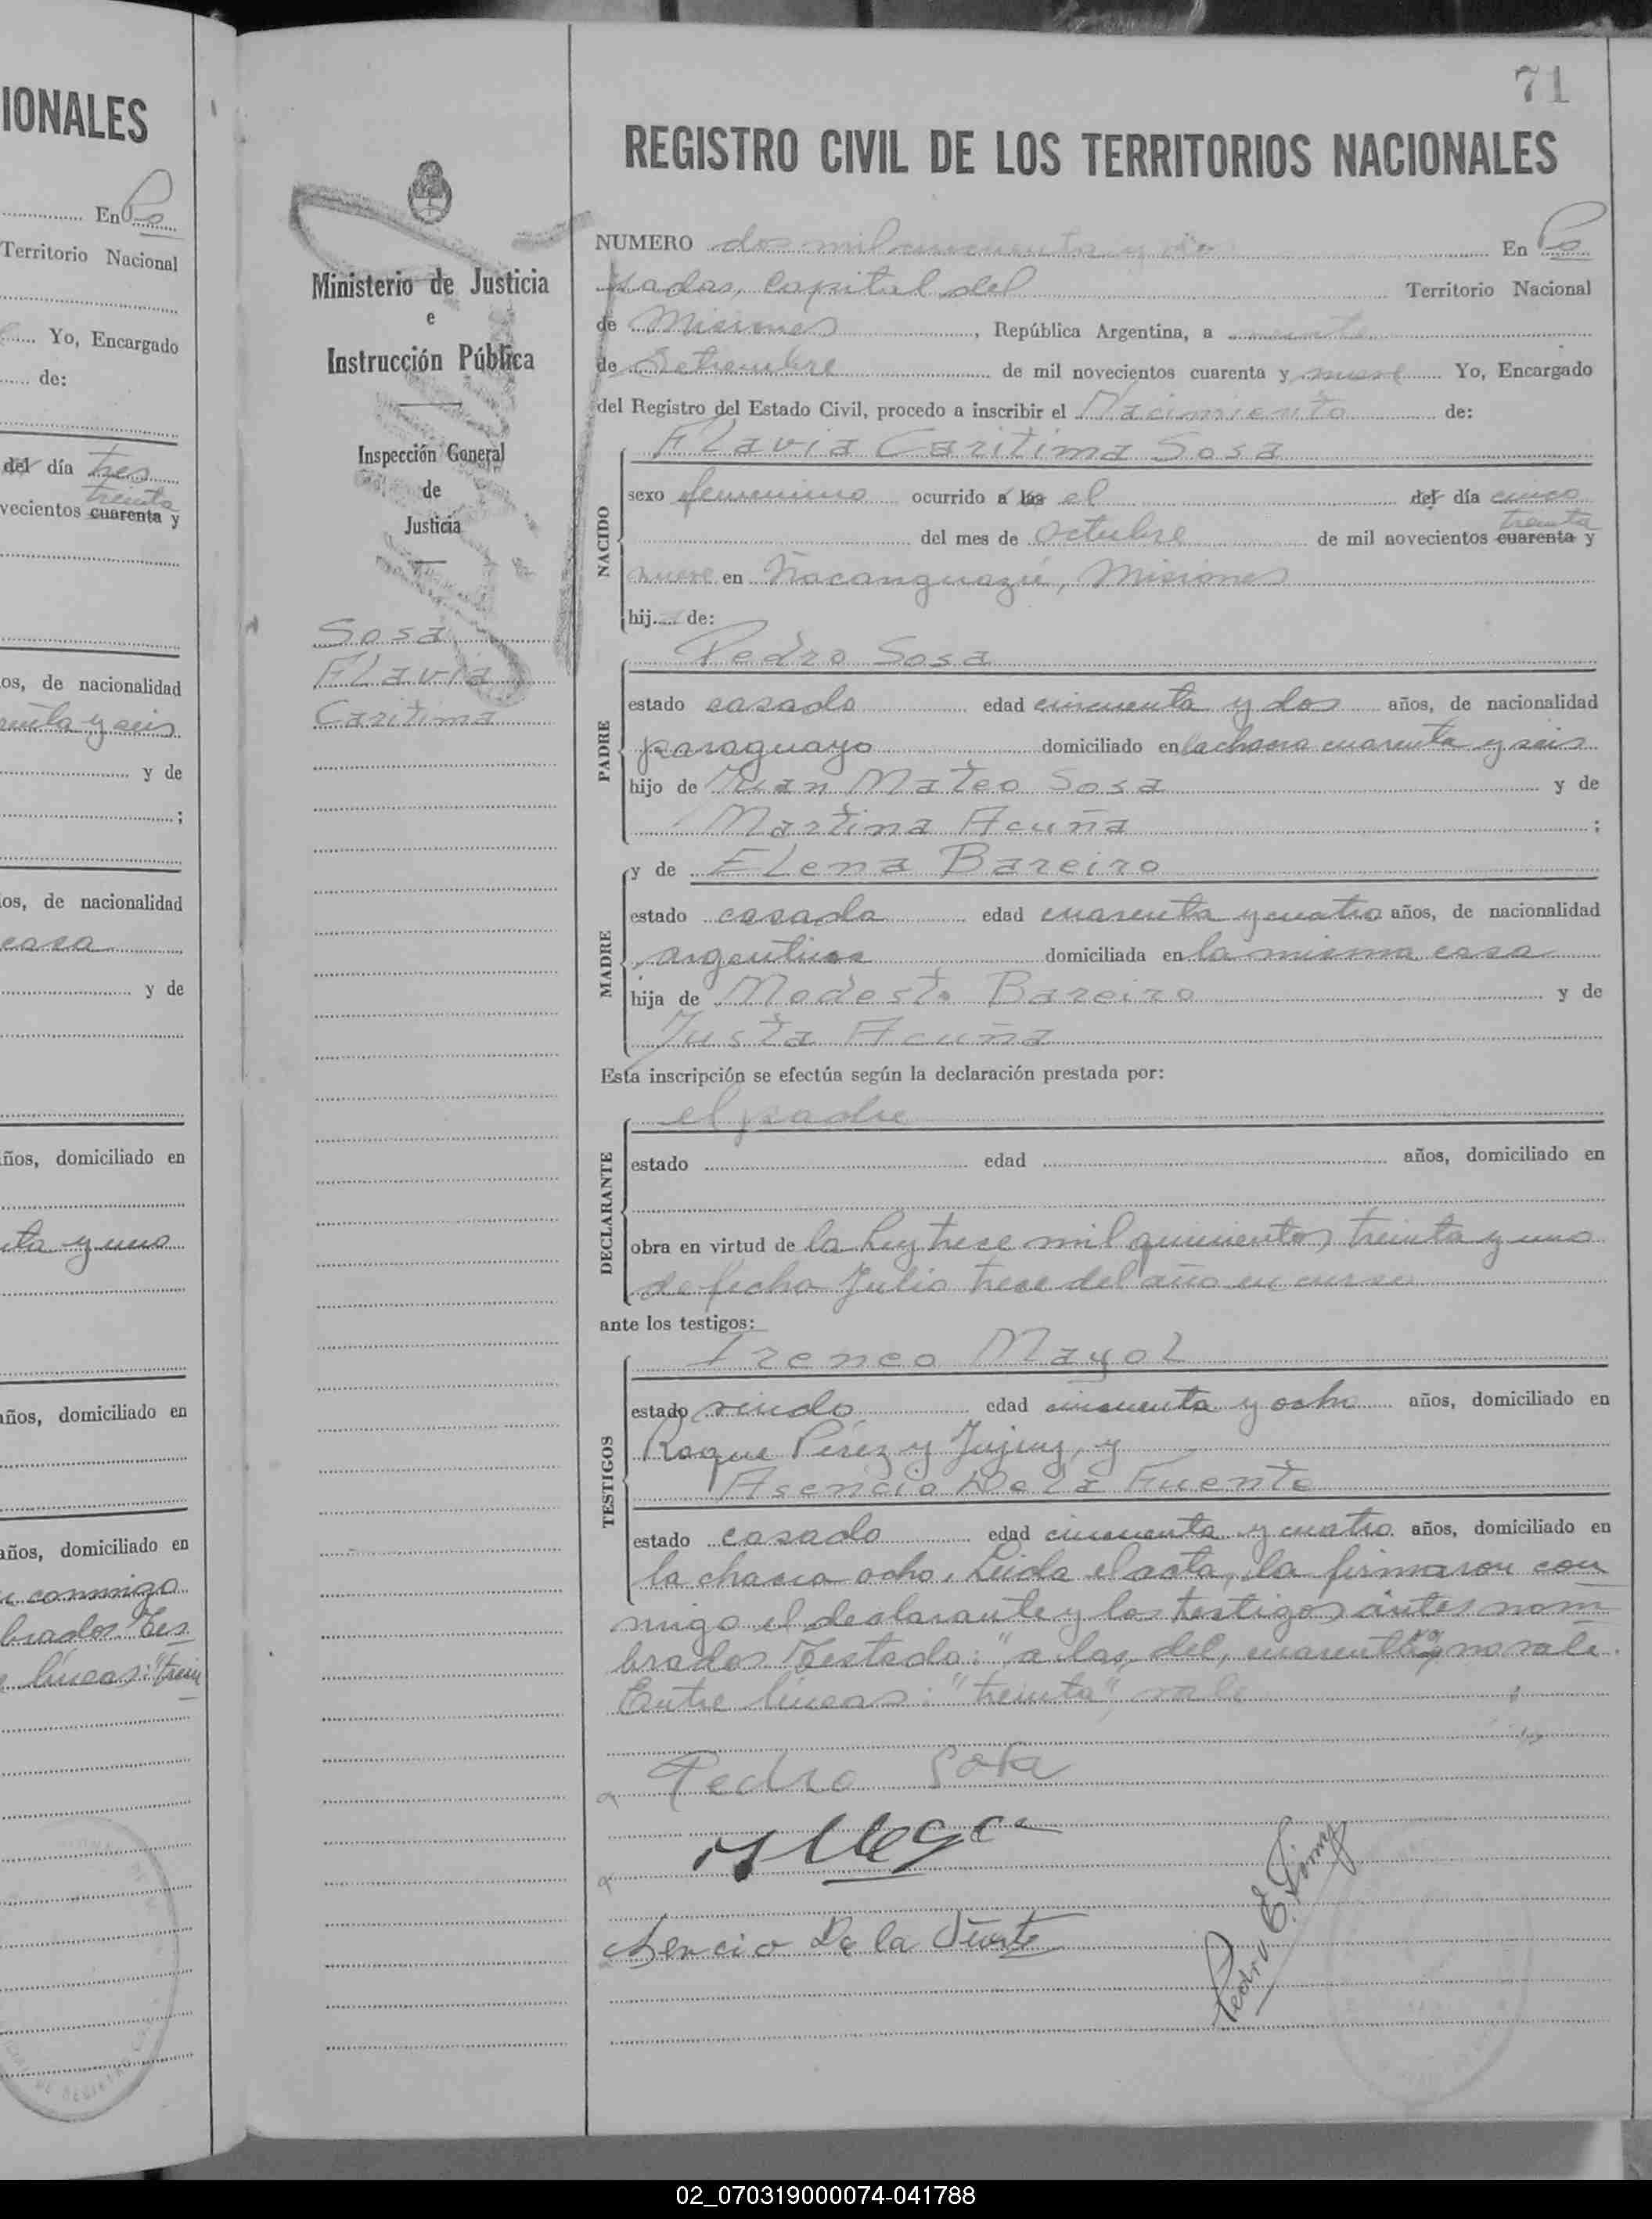 IONALES
En Po
Territorio Nacional
Yo, Encargado
de:
del día tres
treinta
vecientos cuarenta y
os, de nacionalidad
y seis
y de
;
os, de nacionalidad
casa
y de
años, domiciliado en
ta y uno
años, domiciliado en
años, domiciliado en
conmigo
brados. Tes
líneas: "trein
71
REGISTRO CIVIL DE LOS TERRITORIOS NACIONALES
Ministerio de Justicia
e
Instrucción Pública
Inspección General
de
Justicia
Sosa
Flavia
Caritima
NUMERO dos mil cincuenta y dos En Po
sadas, capital del Territorio Nacional
de Misiones, República Argentina, a
de Setiembre de mil novecientos cuarenta y nueve Yo, Encargado
del Registro del Estado Civil, procedo a inscribir el Nacimiento de:
NACIDO
Flavia Caritima Sosa
sexo femenino ocurrido a las el del día cinco
treinta
del mes de Octubre de mil novecientos cuarenta y
nueve en Ñacanguazú, Misiones
hija de:
PADRE
Pedro Sosa
estado casado edad cincuenta y dos años, de nacionalidad
paraguayo domiciliado en la chacra cuarenta y seis
hijo de Juan Mateo Sosa y de
Martina Acuña ;
MADRE
y de Elena Bareiro
estado casada edad cuarenta y cuatro años, de nacionalidad
argentina domiciliada en la misma casa
hija de Modesto Bareiro y de
Justa Acuña
Esta inscripción se efectúa según la declaración prestada por:
DECLARANTE
el padre
estado edad años, domiciliado en
obra en virtud de la Ley trece mil quinientos treinta y uno
de fecha Julio trece del año en curso
ante los testigos:
TESTIGOS
Ireneo Mayol
estado viudo edad cincuenta y ocho años, domiciliado en
Roque Pérez y Jujuy, y
Asencio De la Fuente
estado casado edad cincuenta y cuatro años, domiciliado en
la chacra ocho. Leída el acta, la firmaron con
migo el declarante y los testigos antes nom
brados. Testado: "a las, del, cuarenta" no vale.
Entre líneas: "treinta", vale
Pedro Sosa
Asencio De la Fuente
Pedro E.
02_070319000074-041788